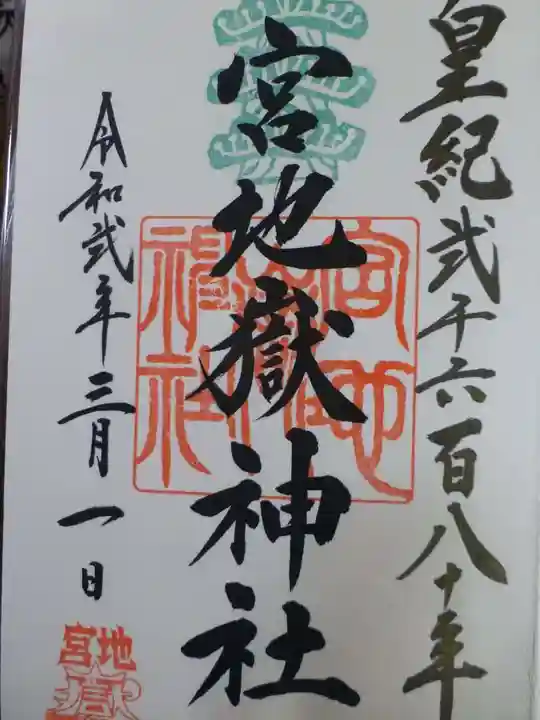 皇紀弐千六百八十年
宮地嶽神社
宮地嶽神社
令和弐年三月一日
宮地
嶽